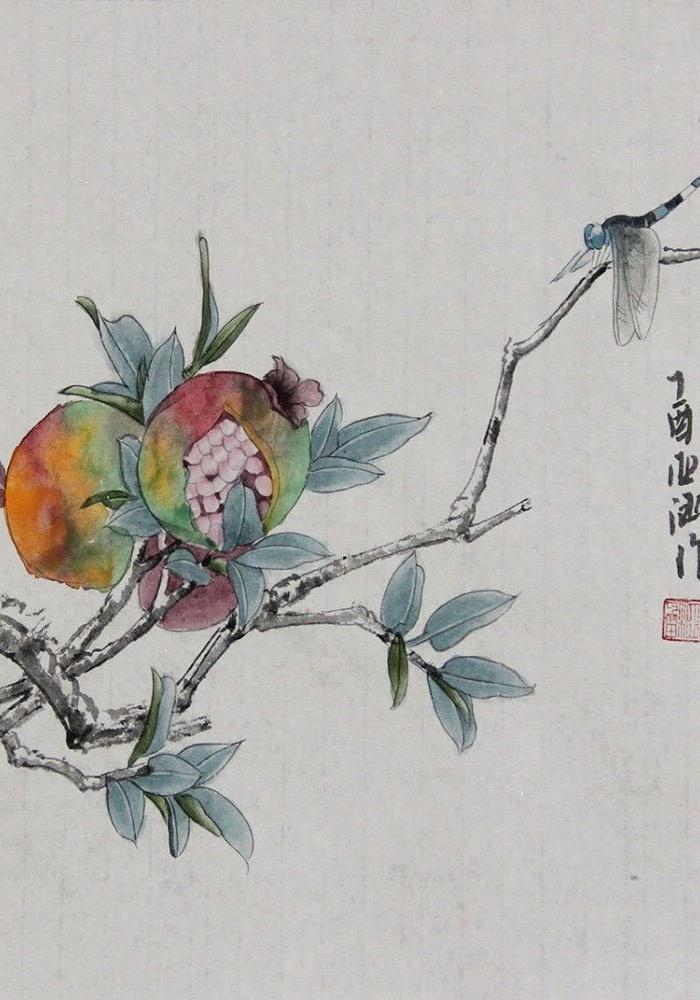 丁酉亚涵作